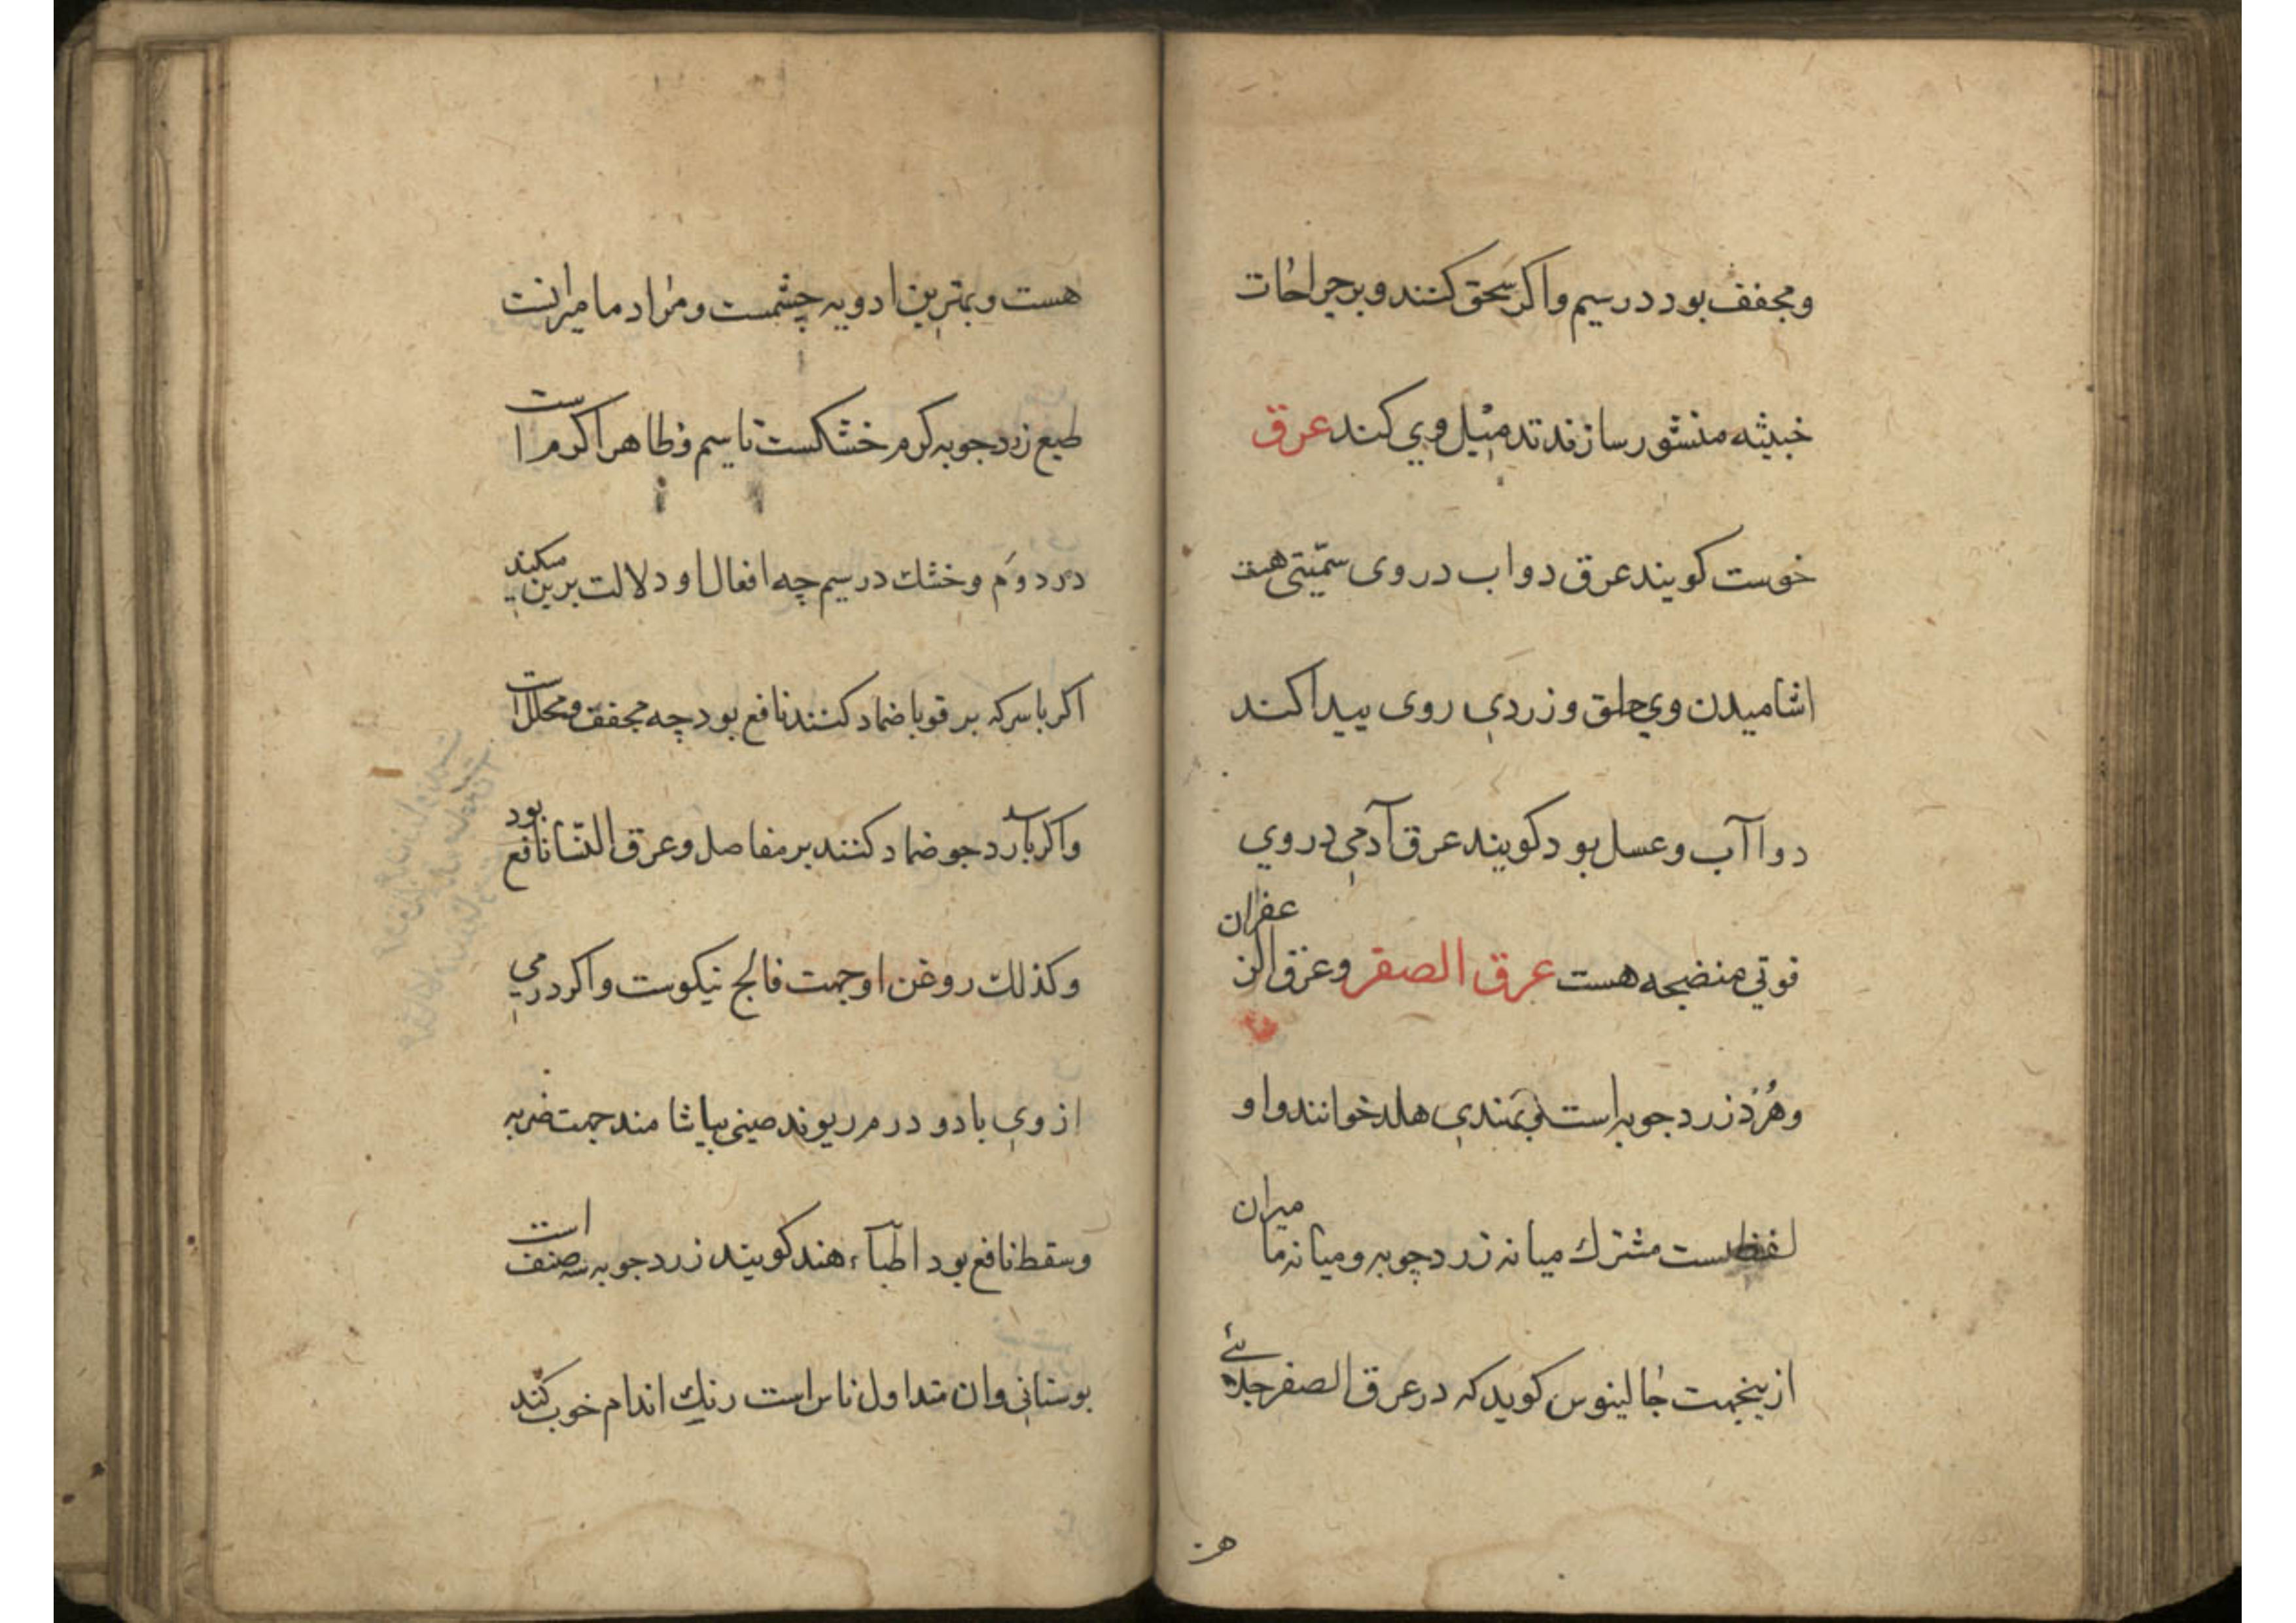 ومجفف بود در سیم واکر سحق کنند و بر جراحات
خبیثه منشور سازند تدمیل وی کند عرق
خوست کویند عرق دواب در وی سمّیتی هست
اشامیدن وی حلق و زردی روی پیدا کند
دوا آب وعسل بود کویند عرق آدمی در وی
قوتی منضجه هست عرق الصفر وعرق الزعفران
وهُرْد زرد جوبه است وبهندی هلد خوانند و او
لفظیست مشترك میانه زرد چوبه ومیانه مامیران
ازینجهت جالینوس کوید که در عرق الصفر جلائے
هست
هست وبهترین ادویه چشمست ومراد مامیرانست
طبع زرد جوبه کرم خشکست تا سیم وظاهرا کرم است
در دوم وخشك در سیم چه افعال او دلالت برین میکند
اکر با سرکه بر قوبا ضماد کنند نافع بود چه مجفف ومحلل است
واکر با آرد جو ضماد کنند بر مفاصل وعرق النّسا نافع بود
وکذلك روغن او جهت فالج نیکوست واکر درمی
از وی با دو درم ریوند صینی بیاشامند جهت ضربه
وسقطه نافع بود اطبآء هند کویند زرد جوبه سه صنف است
بوستانی وان متداول ناس است رنك اندام خوب کند